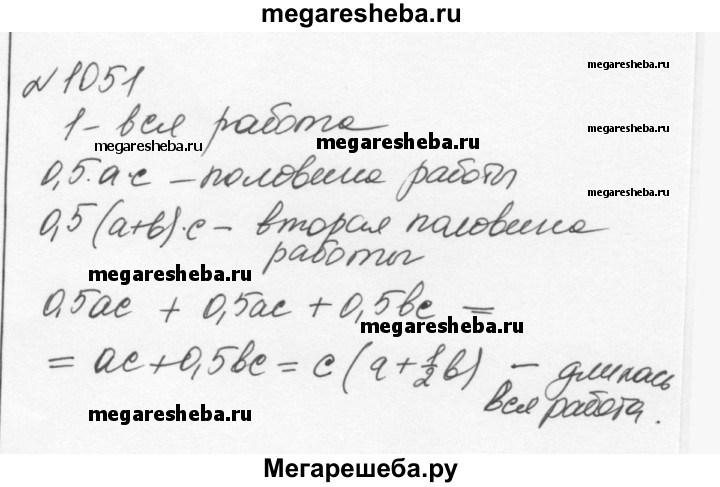 megaresheba.ru
№ 1051
megaresheba.ru
1 - вся работа
megaresheba.ru
megaresheba.ru
megaresheba.ru
0,5·a·c – половина работы
megaresheba.ru
0,5(a+b)·c – вторая половина
работы
megaresheba.ru
0,5ac + 0,5ac + 0,5bc =
megaresheba.ru
= ac + 0,5bc = c(a + 1/2 b) – длилась
вся работа.
megaresheba.ru
Мегарешеба.ру